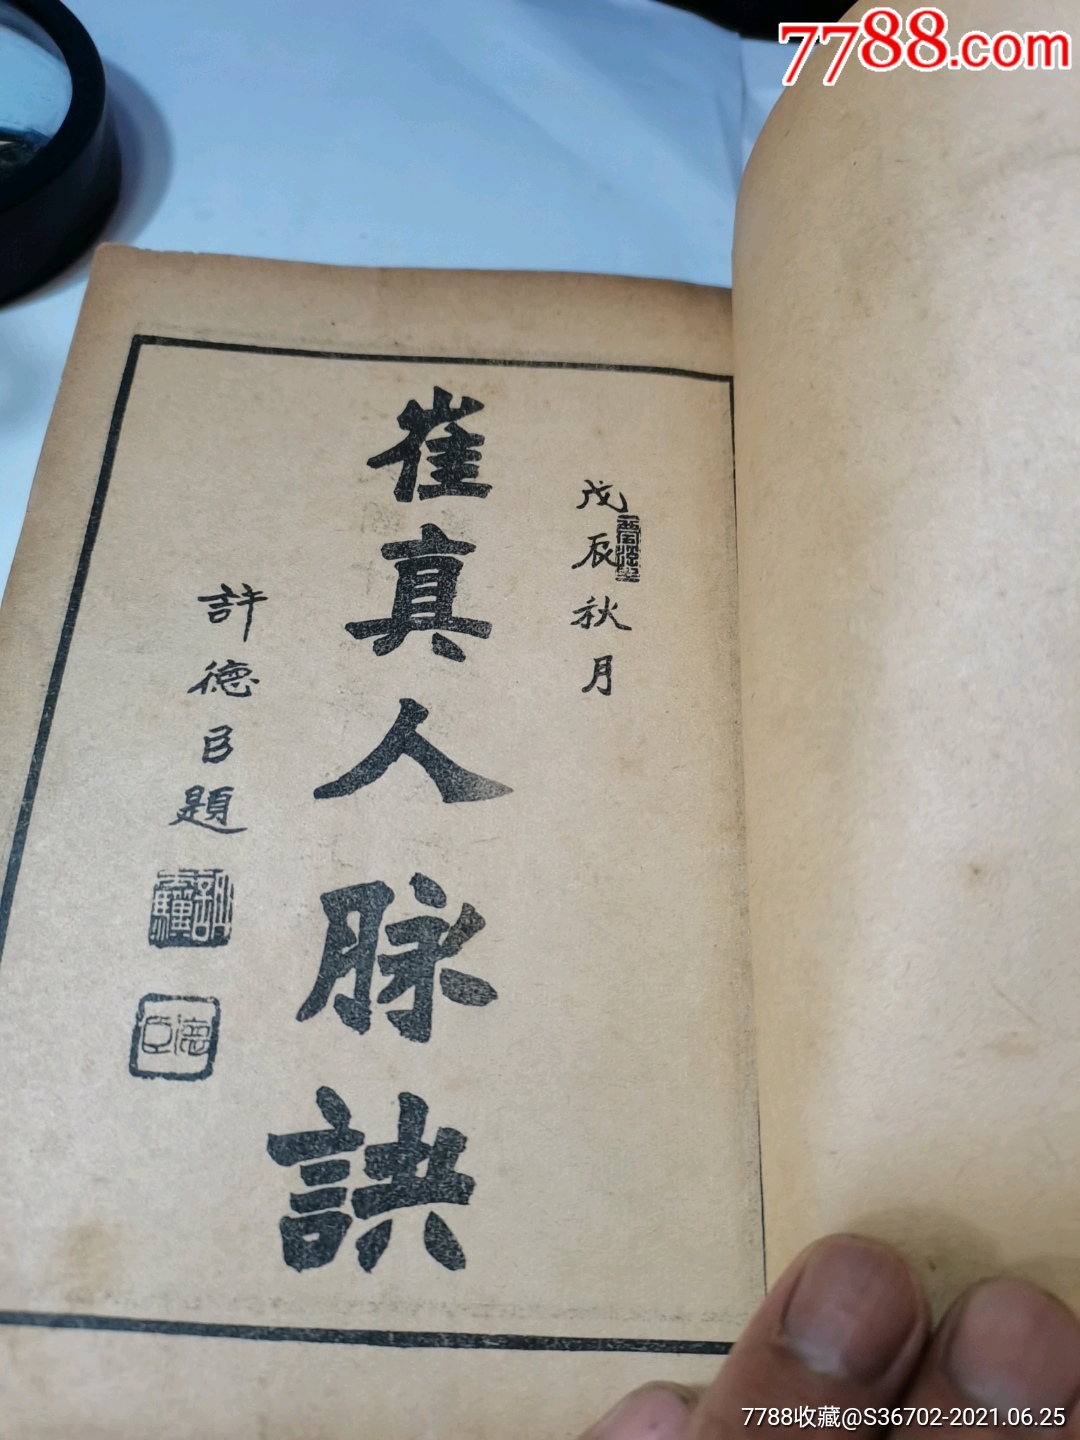 7788.com
戊辰秋月
崔真人脉訣
許德臣題
德臣
7788收藏@S36702-2021.06.25